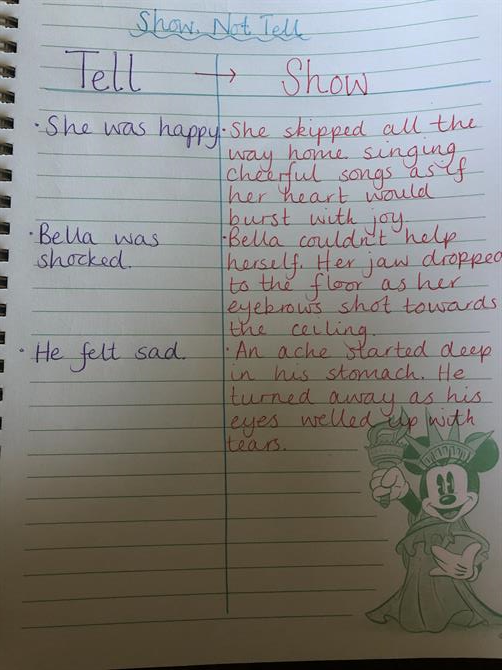 Show, Not Tell
Tell → Show
· She was happy
· She skipped all the
way home singing
cheerful songs as if
her heart would
burst with joy.
· Bella was
shocked.
· Bella couldn't help
herself. Her jaw dropped
to the floor as her
eyebrows shot towards
the ceiling.
· He felt sad.
· An ache started deep
in his stomach. He
turned away as his
eyes welled up with
tears.